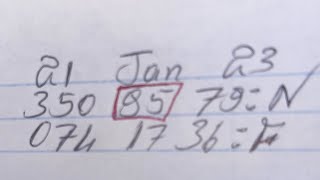 21 Jan 23
350 95 79=N
074 17 36=